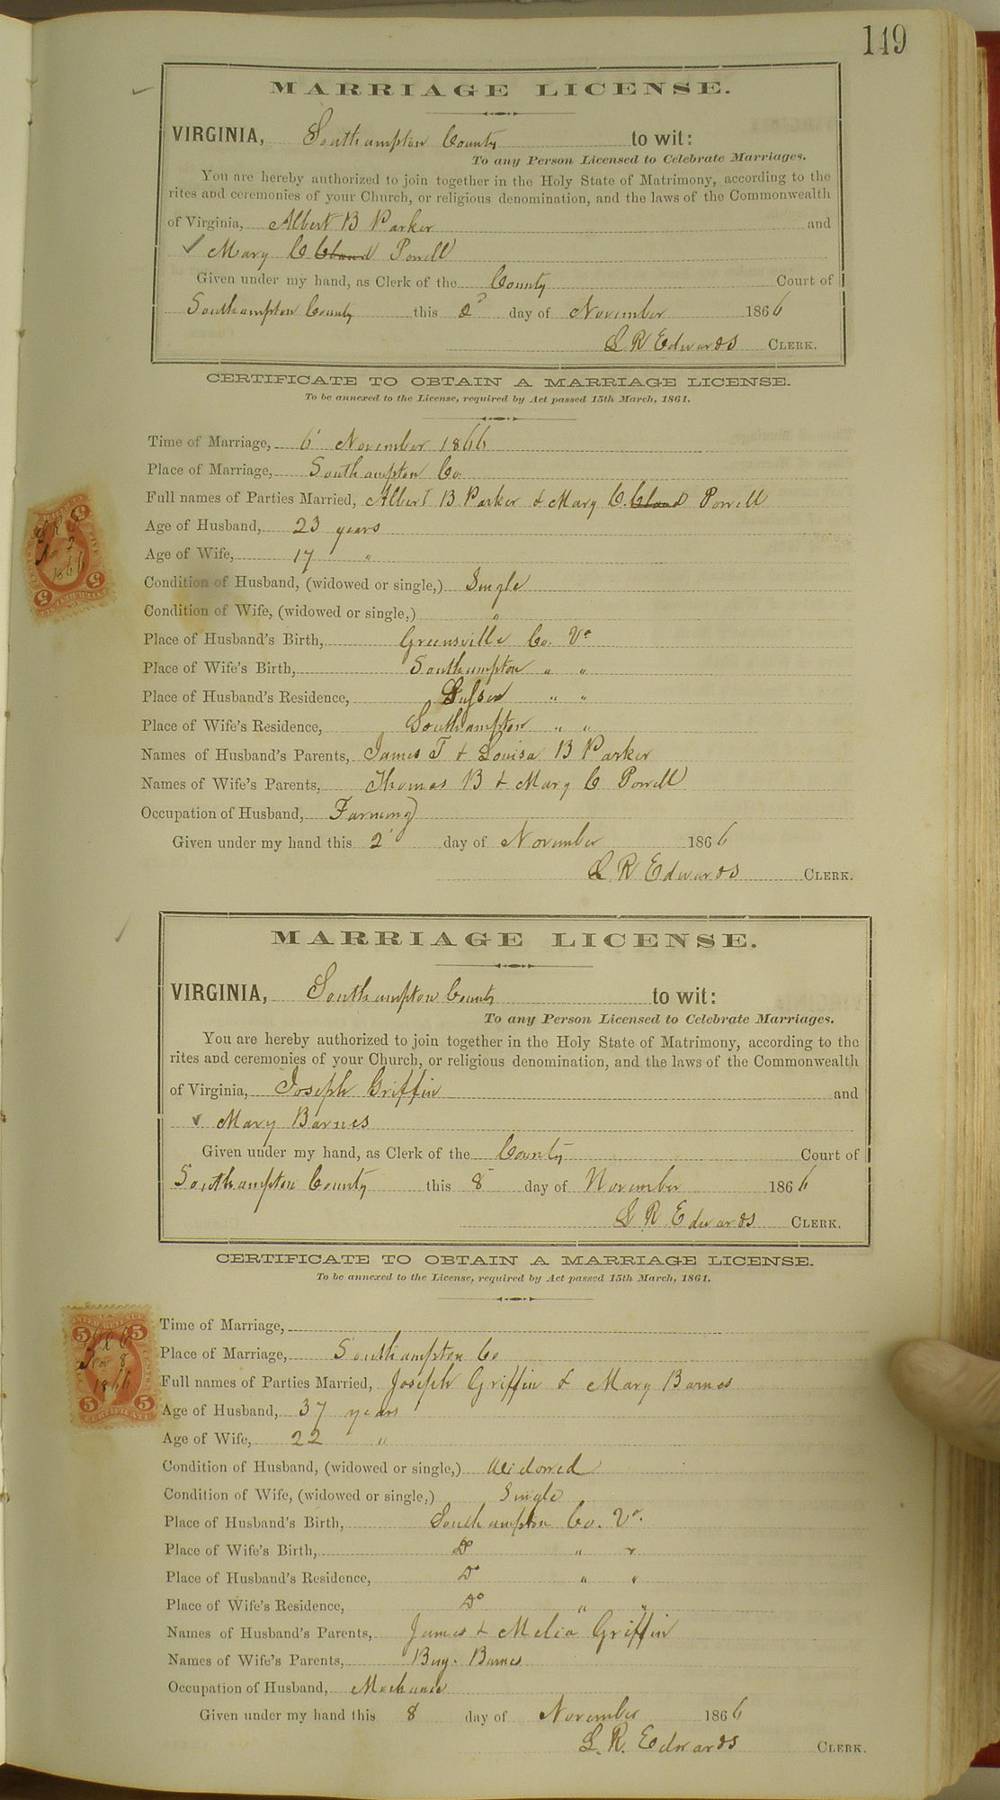 149
MARRIAGE LICENSE.
VIRGINIA, Southampton County to wit:
To any Person Licensed to Celebrate Marriages.
You are hereby authorized to join together in the Holy State of Matrimony, according to the
rites and ceremonies of your Church, or religious denomination, and the laws of the Commonwealth
of Virginia, Albert B Parker and
✓ Mary C Powell
Given under my hand, as Clerk of the County Court of
Southampton County this 2d day of November 1866
L R Edwards CLERK.
CERTIFICATE TO OBTAIN A MARRIAGE LICENSE.
To be annexed to the License, required by Act passed 15th March, 1861.
Time of Marriage, 6' November 1866
Place of Marriage, Southampton Co
Full names of Parties Married, Albert B Parker & Mary C. Powell
Age of Husband, 23 years
Age of Wife, 17 "
Condition of Husband, (widowed or single,) Single
Condition of Wife, (widowed or single,) "
Place of Husband's Birth, Greensville Co. Va
Place of Wife's Birth, Southampton " "
Place of Husband's Residence, Sussex " "
Place of Wife's Residence, Southampton " "
Names of Husband's Parents, James T & Louisa B Parker
Names of Wife's Parents, Thomas B & Mary C Powell
Occupation of Husband, Farming
Given under my hand this 2' day of November 1866
L R Edwards CLERK.
MARRIAGE LICENSE.
VIRGINIA, Southampton County to wit:
To any Person Licensed to Celebrate Marriages.
You are hereby authorized to join together in the Holy State of Matrimony, according to the
rites and ceremonies of your Church, or religious denomination, and the laws of the Commonwealth
of Virginia, Joseph Griffin and
✓ Mary Barnes
Given under my hand, as Clerk of the County Court of
Southampton County this 8 day of November 1866
L R Edwards CLERK.
CERTIFICATE TO OBTAIN A MARRIAGE LICENSE.
To be annexed to the License, required by Act passed 15th March, 1861.
Time of Marriage,
Place of Marriage, Southampton Co
Full names of Parties Married, Joseph Griffin & Mary Barnes
Age of Husband, 37 years
Age of Wife, 22 "
Condition of Husband, (widowed or single,) Widowed
Condition of Wife, (widowed or single,) Single
Place of Husband's Birth, Southampton Co. Va.
Place of Wife's Birth, Do " "
Place of Husband's Residence, Do " "
Place of Wife's Residence, Do " "
Names of Husband's Parents, James & Melia Griffin
Names of Wife's Parents, Benj. Barnes
Occupation of Husband, Mechanic
Given under my hand this 8 day of November 1866
L. R. Edwards CLERK.
5 5
Nov 8
1866
5 5
CERTIFICATE